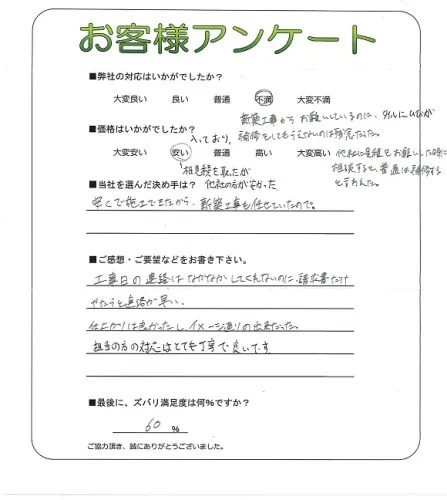 お客様アンケート
■弊社の対応はいかがでしたか？
大変良い　良い　普通　不満　大変不満
新築工事からお願いしているのに、タイルにひびが
入っており、補修をしてもらえないのは残念だった。
■価格はいかがでしたか？
大変安い　安い　普通　高い　大変高い
相見積を取ったが
他社の方が安かった
他社に見積をお願いした時に
相談すると、普通は補修する
と言われた。
■当社を選んだ決め手は？
安くで施工できたから、新築工事も任せていたので。
■ご感想・ご要望などをお書き下さい。
工事日の連絡はなかなかしてくれないのに、請求書だけ
やたらと連絡が早い。
仕上がりは良かったし、イメージ通りの出来だった。
担当の方の対応はとても丁寧で良いです。
■最後に、ズバリ満足度は何%ですか？
60 %
ご協力頂き、誠にありがとうございました。